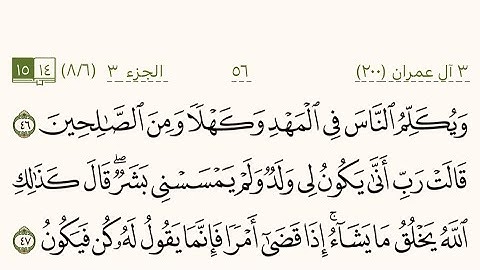 ٣ آل عمران (٢٠٠) ٥٦ الجزء ٣ (٨/٦) ١٤ ١٥
وَيُكَلِّمُ ٱلنَّاسَ فِي ٱلْمَهْدِ وَكَهْلًا وَمِنَ ٱلصَّٰلِحِينَ ٤٦
قَالَتْ رَبِّ أَنَّىٰ يَكُونُ لِي وَلَدٌ وَلَمْ يَمْسَسْنِي بَشَرٌ ۖ قَالَ كَذَٰلِكِ
ٱللَّهُ يَخْلُقُ مَا يَشَآءُ ۚ إِذَا قَضَىٰٓ أَمْرًا فَإِنَّمَا يَقُولُ لَهُۥ كُن فَيَكُونُ ٤٧